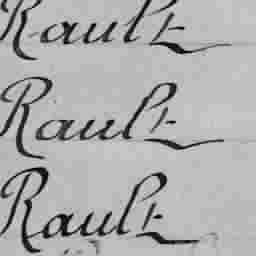 Rault
Rault
Rault